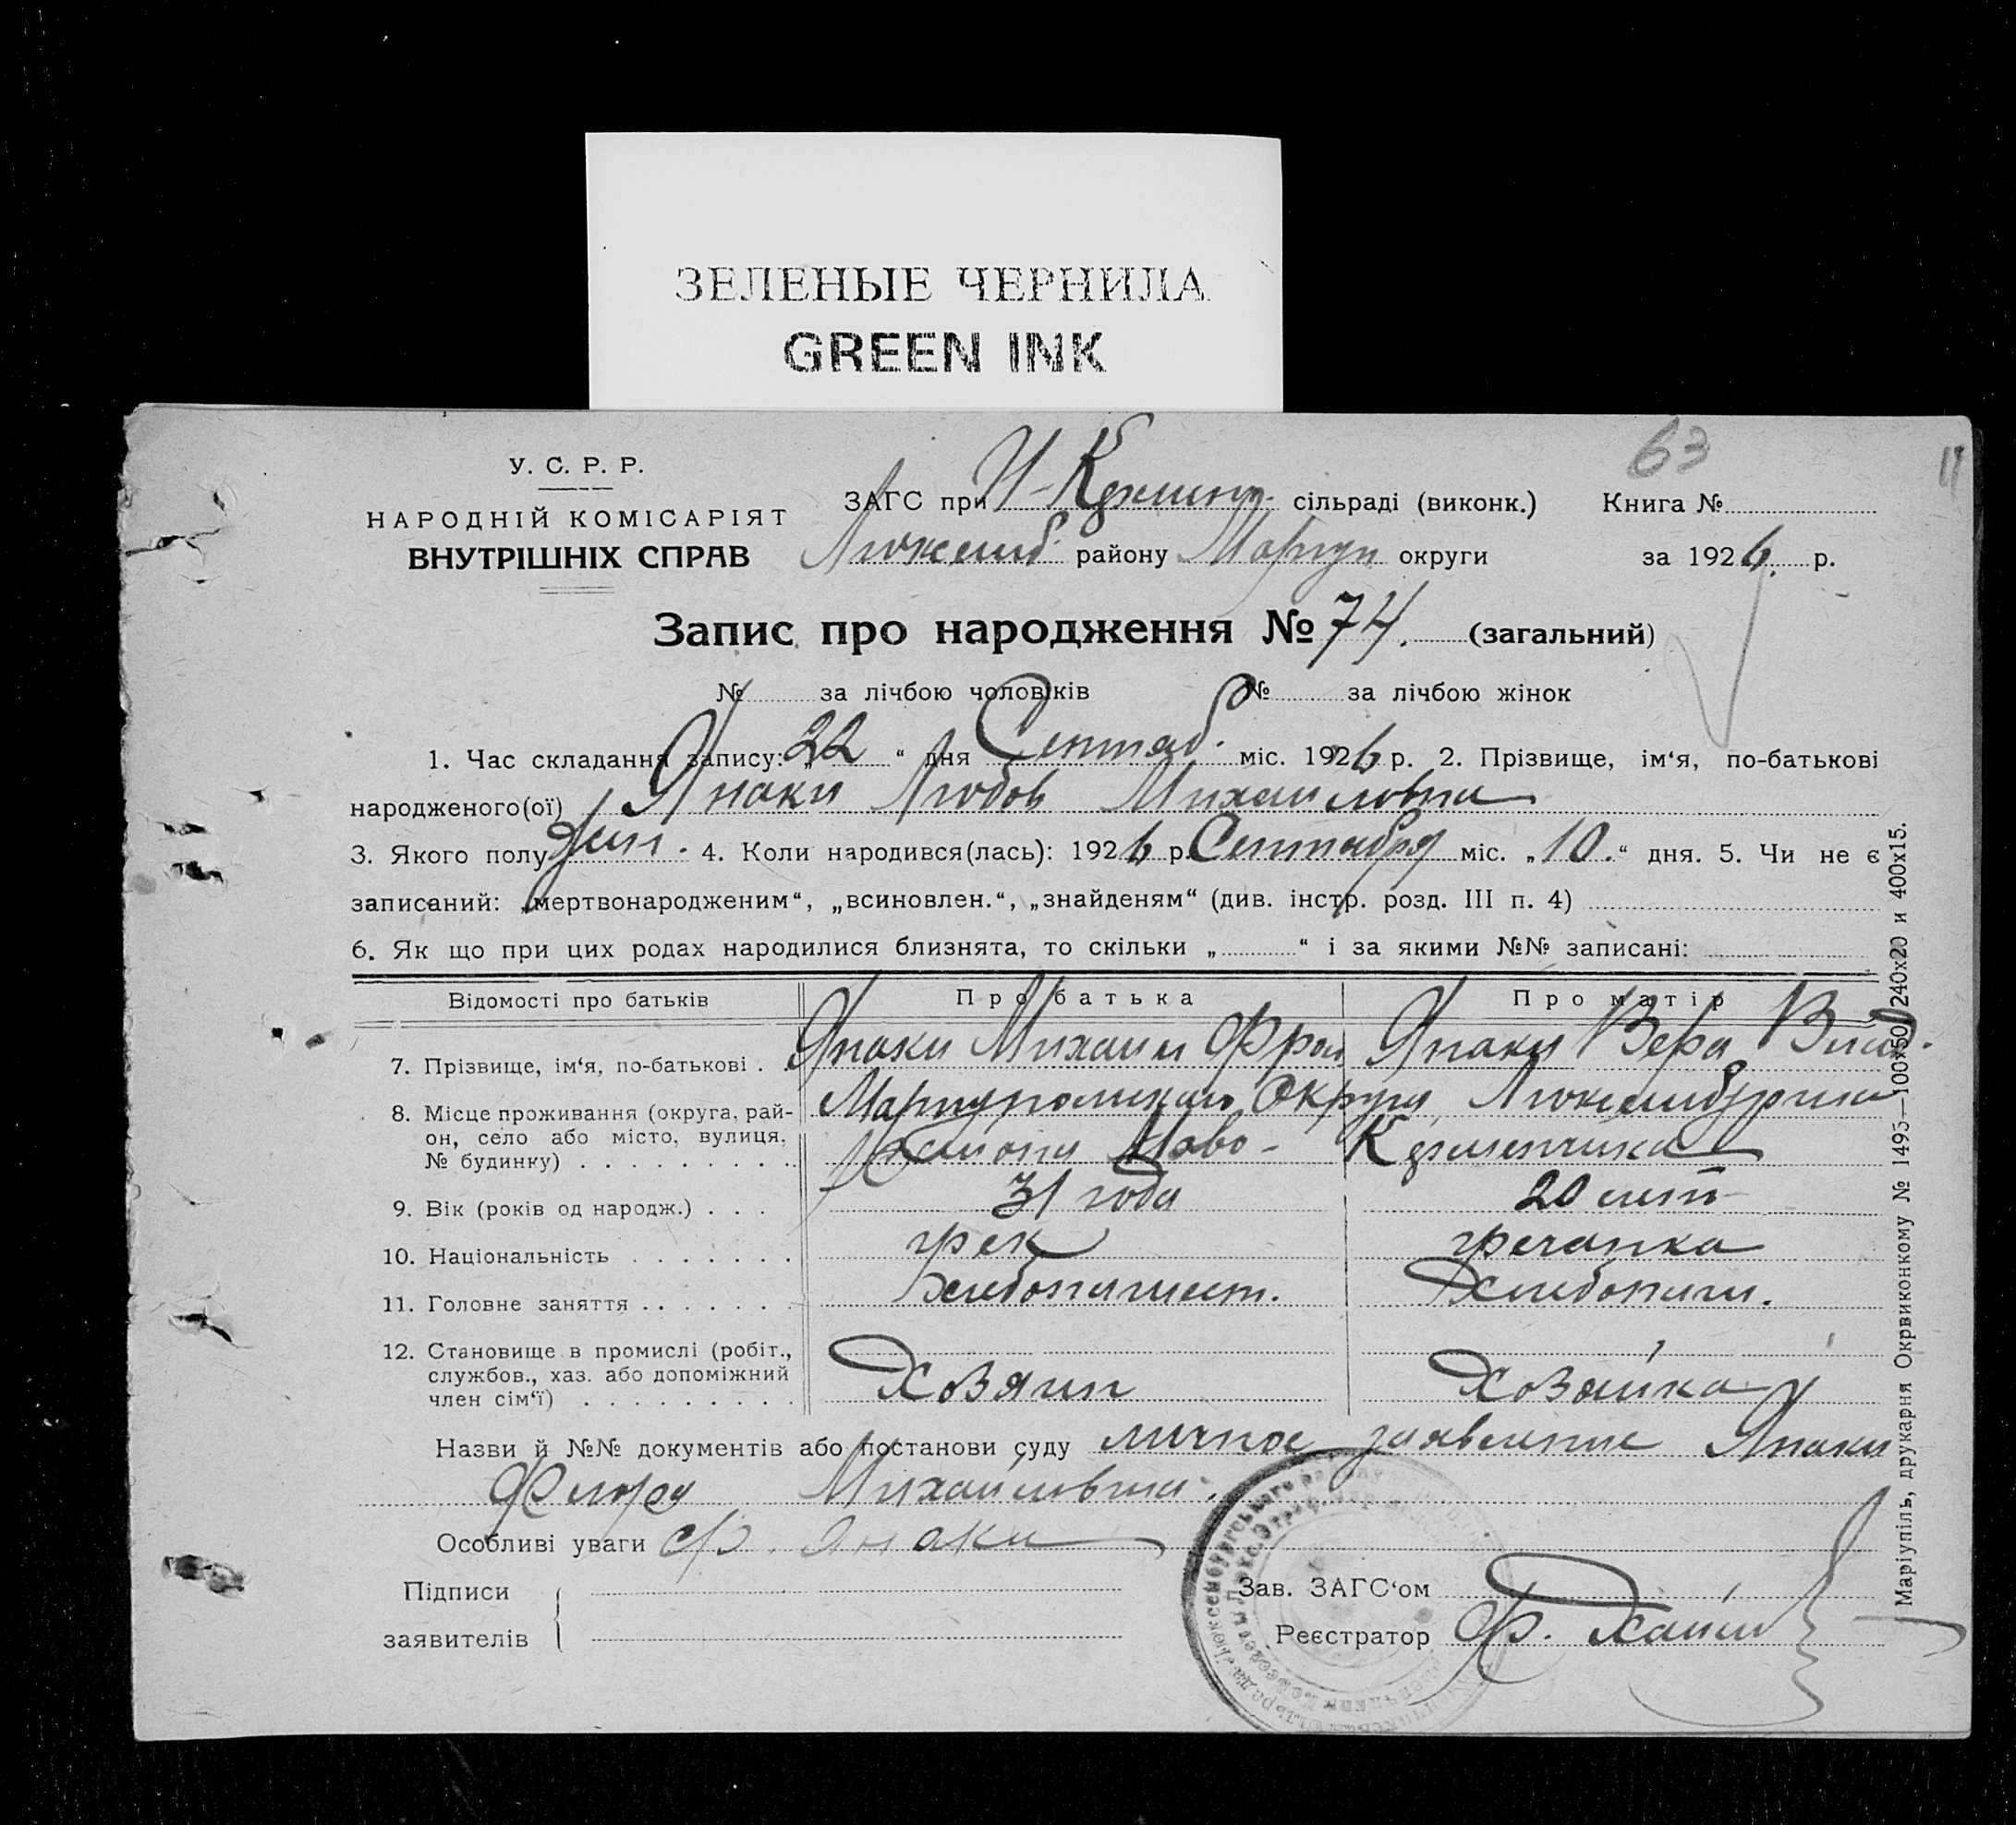 ЗЕЛЕНЫЕ ЧЕРНИЛА
GREEN INK
63
У. С. Р. Р.
НАРОДНІЙ КОМІСАРІЯТ
ВНУТРІШНІХ СПРАВ
ЗАГС при Н-Керменч. сільраді (виконк.) Книга №
Люксемб. району Мариуп округи за 1926. р.
Запис про народження № 74. (загальний)
№ за лічбою чоловіків № за лічбою жінок
1. Час складання запису: „22“ дня Сентяб. міс. 1926 р. 2. Прізвище, ім‘я, по-батькові
народженого(ої) Янаки Любов Михайловна
3. Якого полу жен. 4. Коли народився(лась): 1926 р. Сентября міс. „10.“ дня. 5. Чи не є
записаний: „мертвонародженим“, „всиновлен.“, „знайденям“ (див. інстр. розд. III п. 4)
6. Як що при цих родах народилися близнята, то скільки „ “ і за якими №№ записані:
Відомості про батьків Про батька Про матір
7. Прізвище, ім‘я, по-батькові . . Янаки Михаил Янаки Вера
8. Місце проживання (округа, рай-
он, село або місто, вулиця,
№ будинку) . . . . . . . . .
Мариупольского Округа, Люксембургска
района Ново- Керменчика
9. Вік (років од народж.) . . . 31 года 20 лет
10. Національність . . . . . . . грек гречанка
11. Головне заняття . . . . . . . хлебопашест. Хлебопаш.
12. Становище в промислі (робіт.,
службов., хаз. або допоміжний
член сім‘ї) . . . . . . . . .
Хозяин Хозяйка
Назви й №№ документів або постанови суду личное заявление Янаки
Флора Михайловича.
Особливі уваги Ф. Янаки
Підписи
заявителів
Зав. ЗАГС‘ом
Реєстратор Ф.
Маріупіль, друкарня Окрвиконкому № 1495—100х50, 240х20 и 400х15.